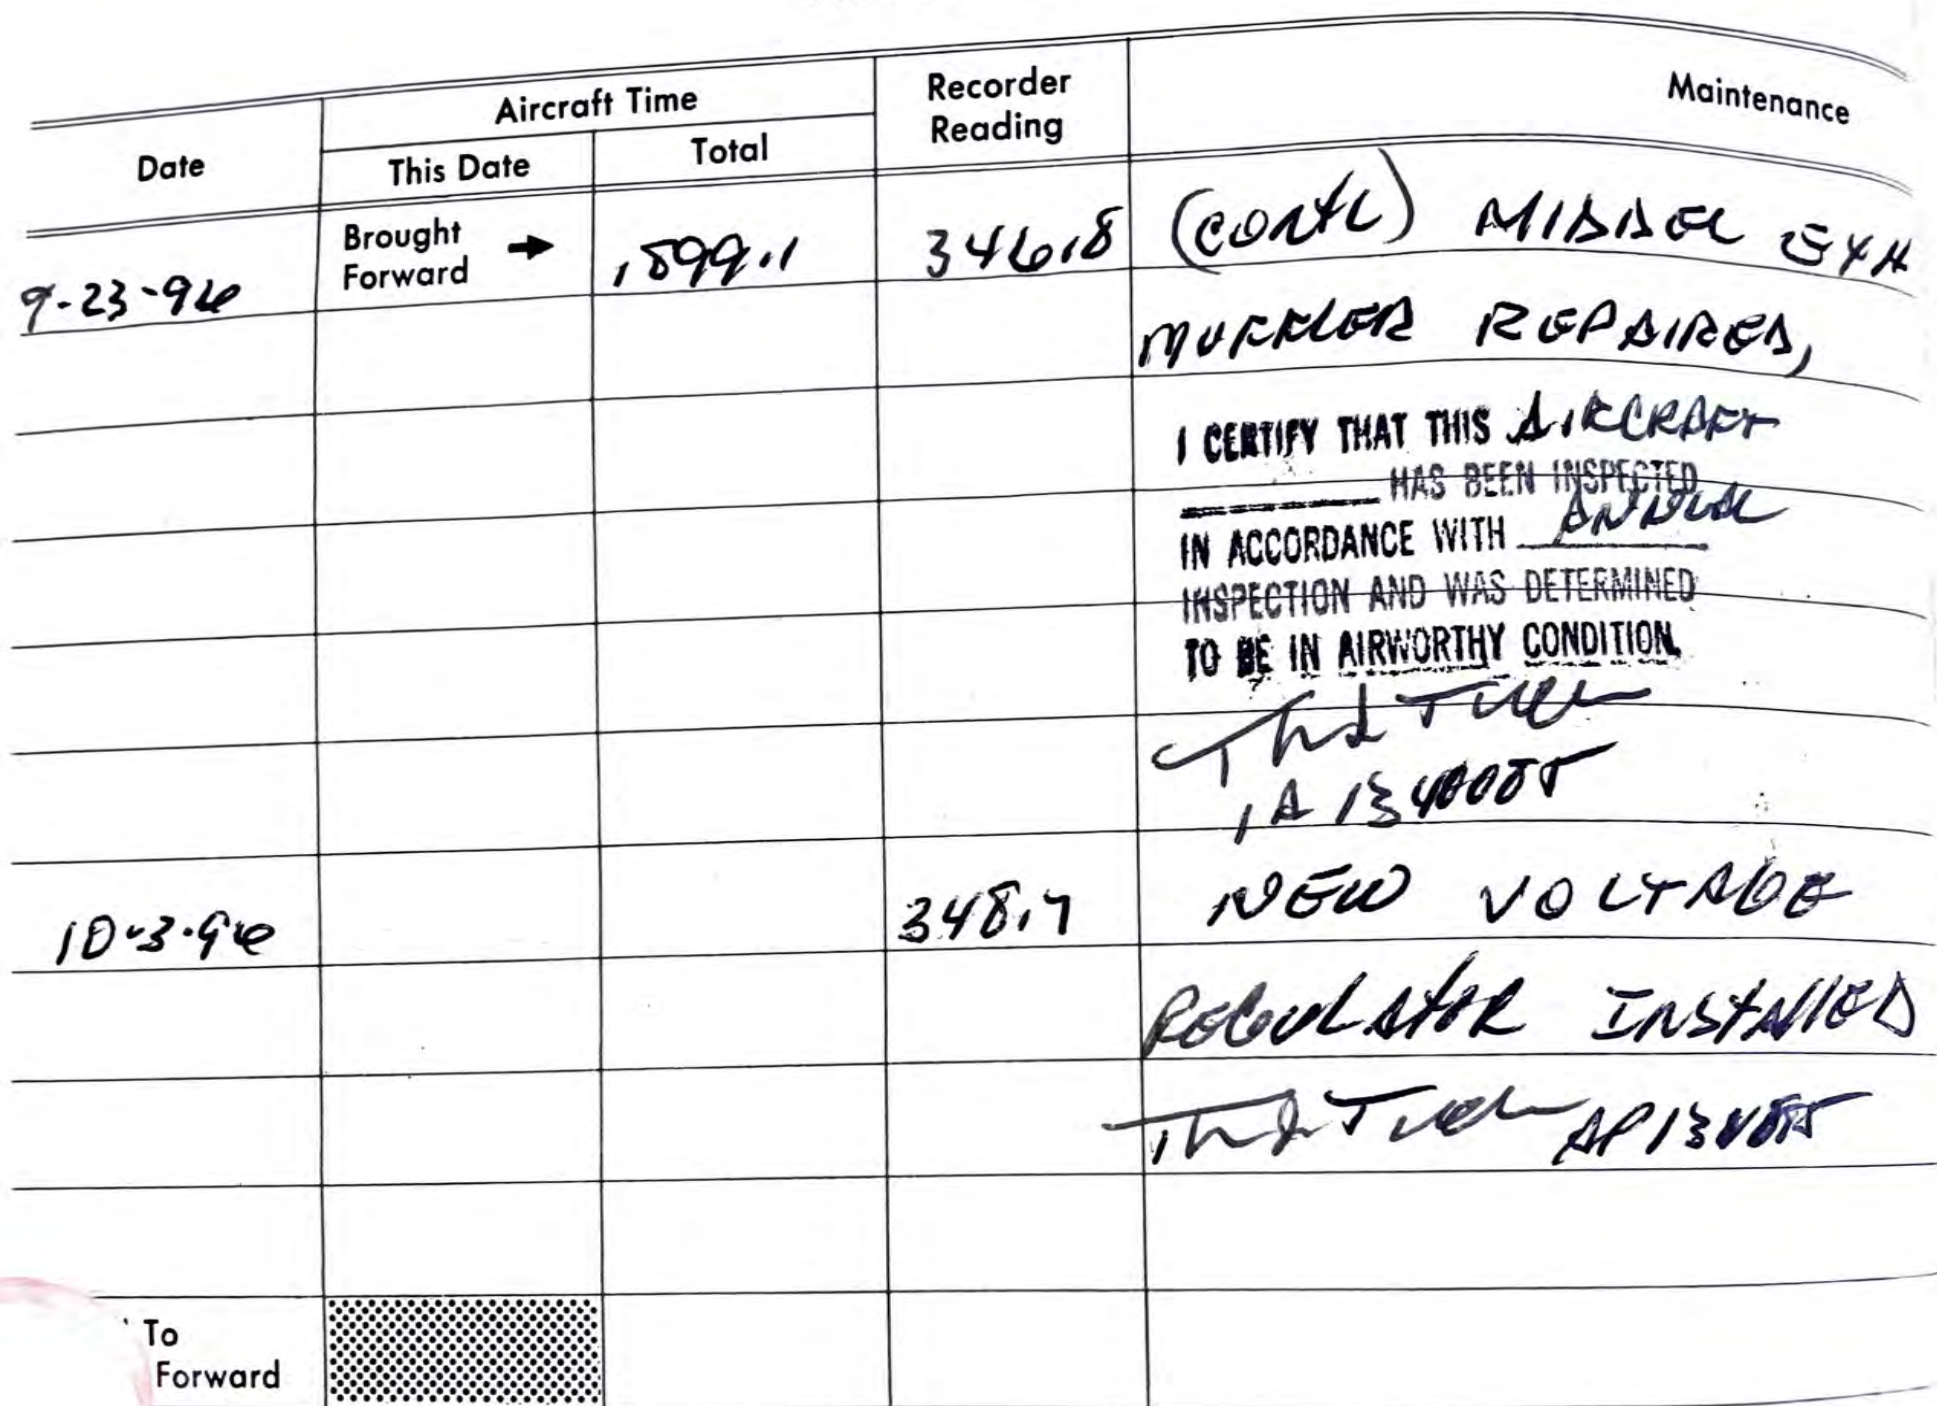 Date
Aircraft Time
This Date
Total
Recorder
Reading
Maintenance
9-23-96
Brought
Forward
1899.1
346.8
(CONT) MIDDEL EXH
MUFFLER REPAIRED,
I CERTIFY THAT THIS AIRCRAFT
HAS BEEN INSPECTED
IN ACCORDANCE WITH ANNUAL
INSPECTION AND WAS DETERMINED
TO BE IN AIRWORTHY CONDITION.
IA
10-3-96
348.7
NEW VOLTAGE
REGULATOR INSTALLED
AP
To
Forward